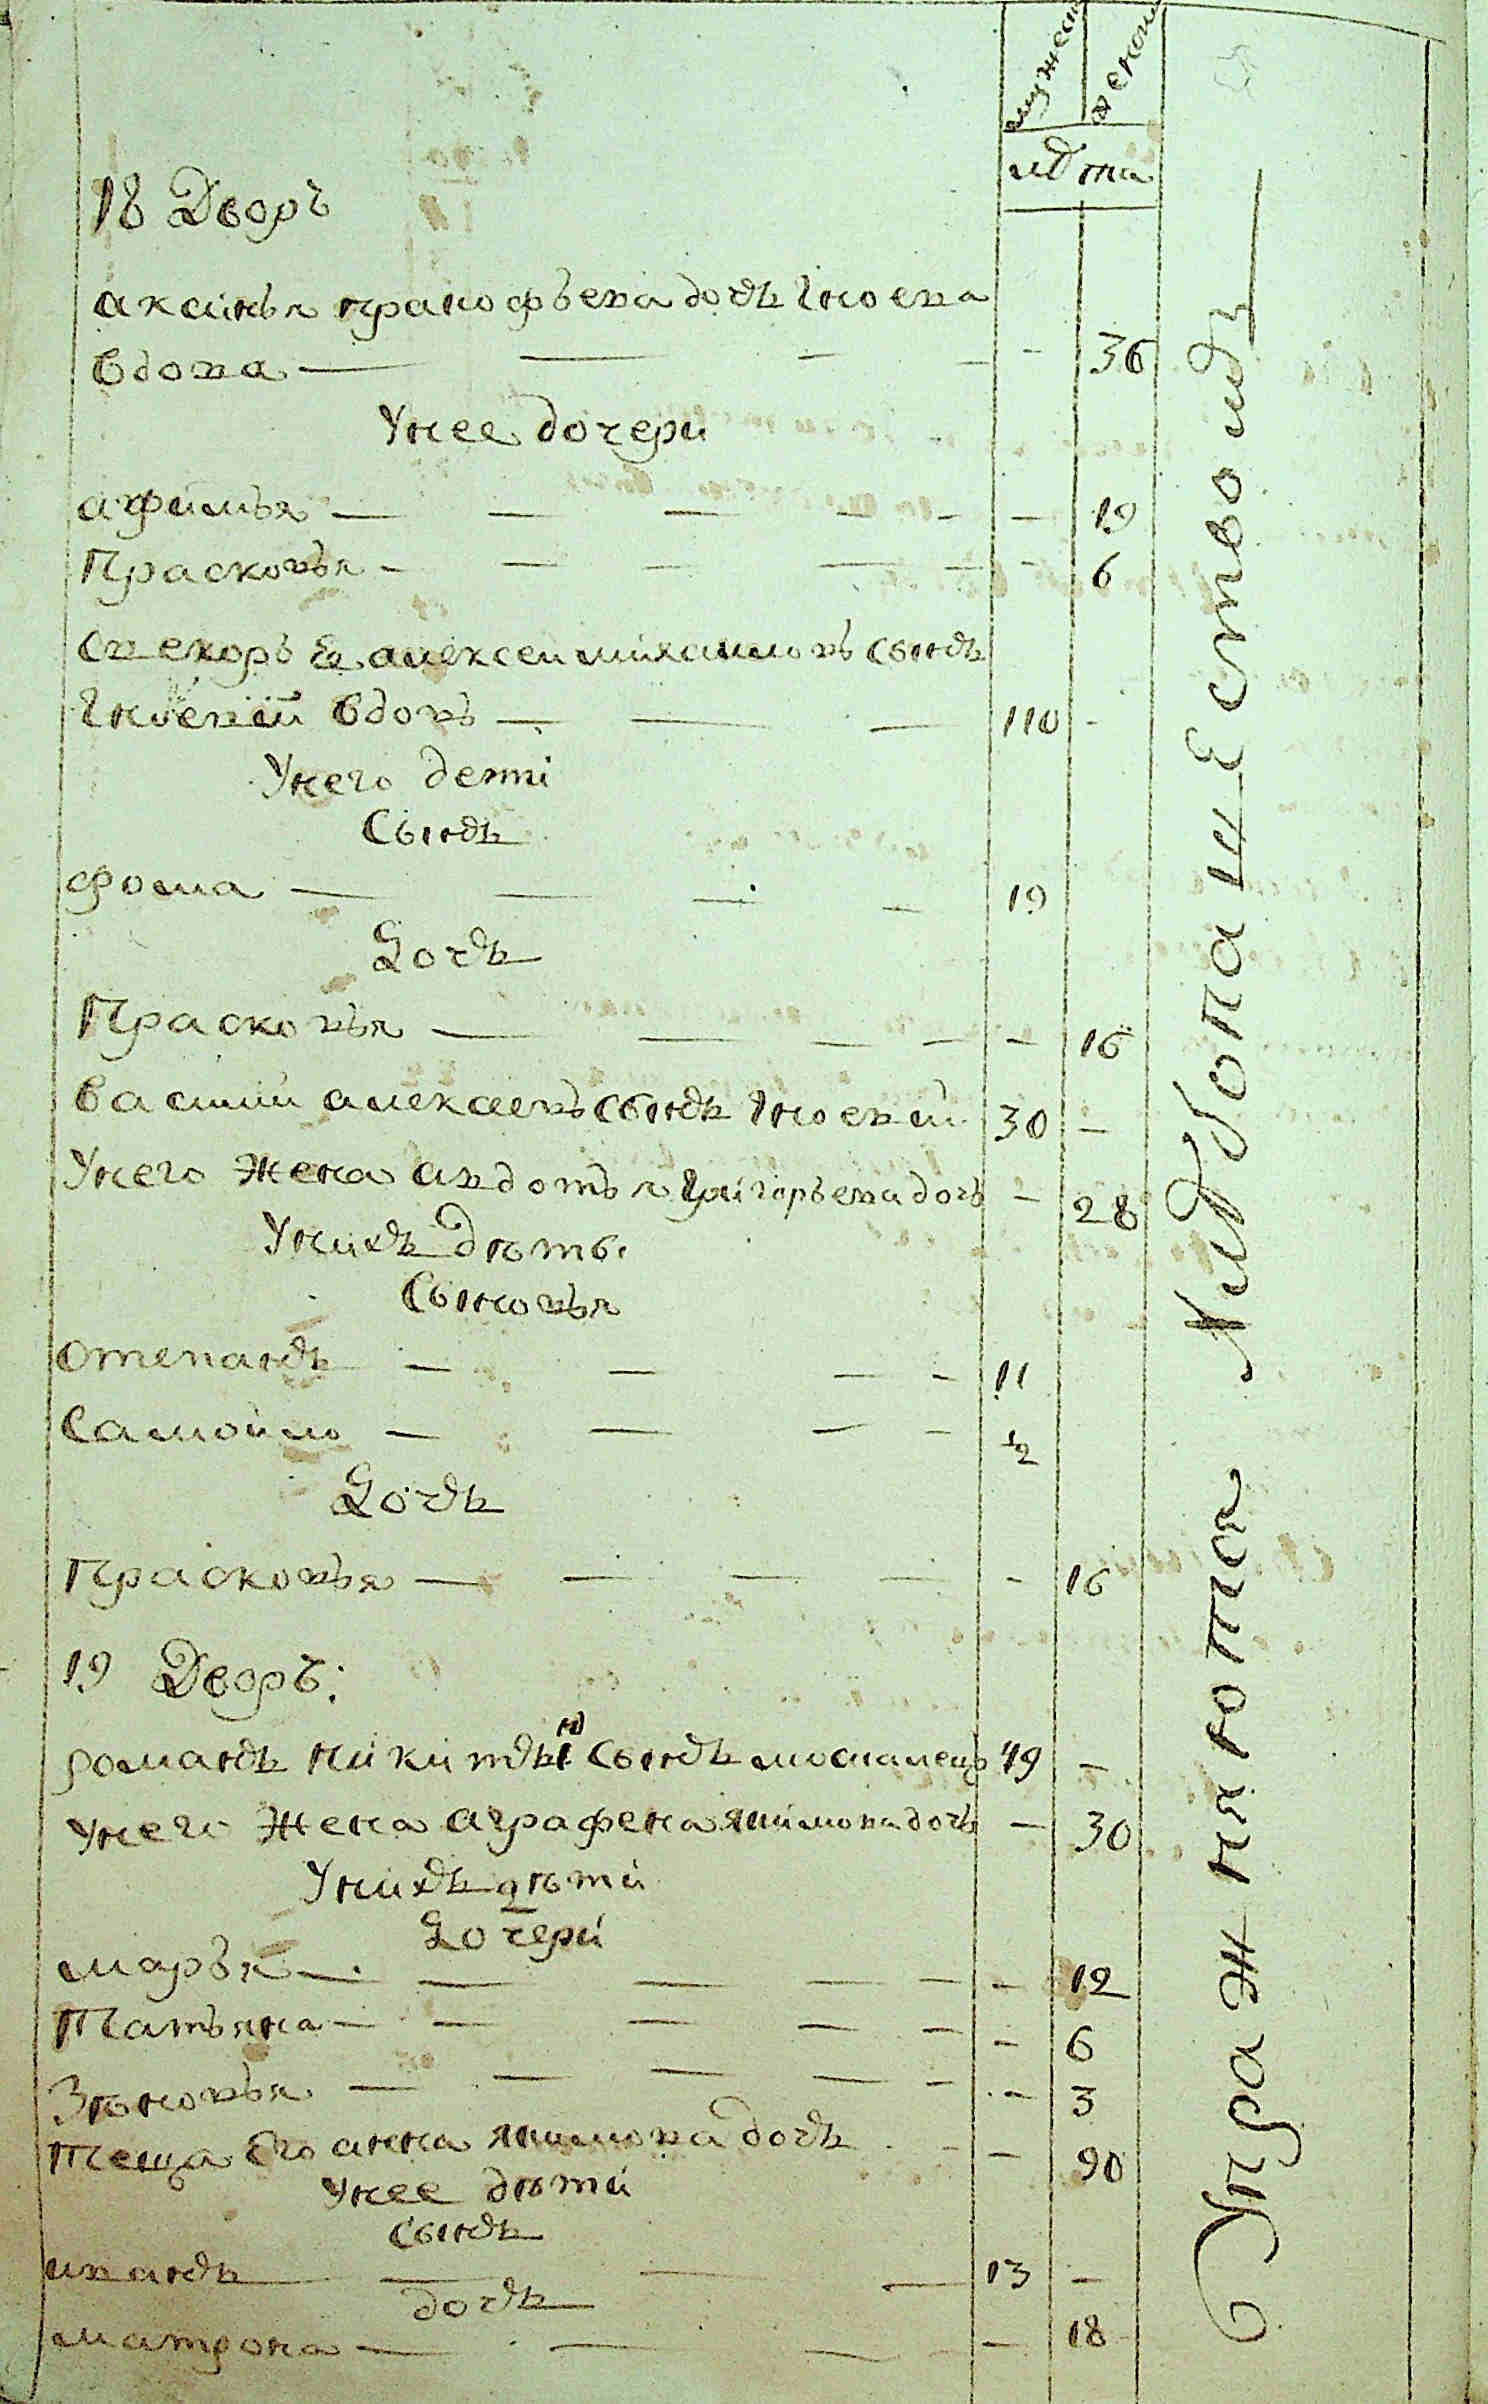 мужеск женски
лета
18 Дворъ
аксинья пракофьева дочь Гноева
вдова — — — — — 36
У нее дочери
афимья — — — — — 19
Прасковья — — — — — 6
Свекоръ Ея алексеи михаиловъ сынъ
Гноевой вдовъ — — — 110 -
У него дети
Сынъ
фома — — — — 19
Дочь
Прасковья — — — — — 16
Василий алексеевъ сынъ Гноевой 30 —
У него жена авдотья Григорьева дочь — 28
У нихъ дѣти
Сыновья
Степанъ — — — — 11
Самойло — — — — ½
Дочь
Прасковья — — — — — 16
19 Дворъ:
романъ никитинъ сынъ 49 —
У него жена аграфена дочь — 30
У нихъ дѣти
Дочери
марья — — — — — 12
Татьяна — — — — — 6
Зѣновья — — — — — 3
Теща Его анна дочь — — 90
У нее дѣти
Сынъ
иванъ — — — 13 —
дочь
матрона — — — — 18
Упражняются